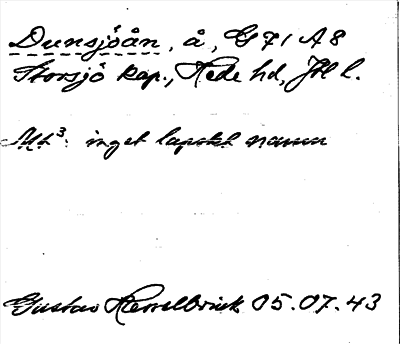 Dunsjöån, å, G 71 A8
Storsjö kap., Hede hd, Jtl l.
Mt³: inget lapskt namn
Gustav Hasselbrink 05.07.43